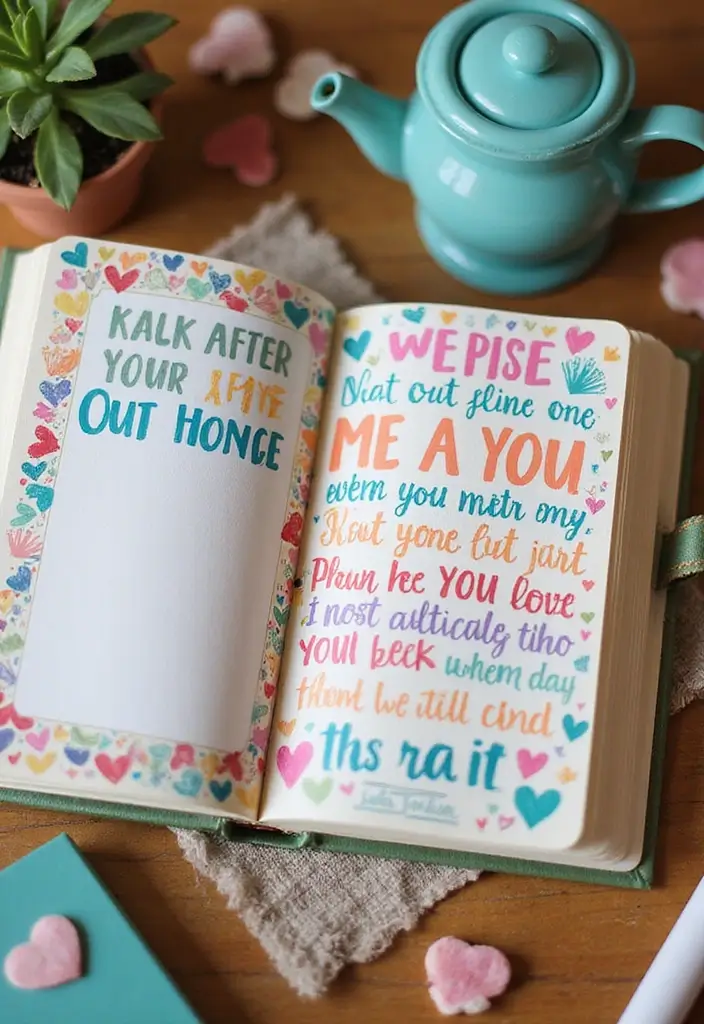 KALK AFTER
YOUR
OUT HONGE
WEPISE
out sline one
ME A YOU
evem you metr omy.
Kout yone fut jart
Phun he YOU love
I nost altically tiho
YOUl beek whem day
thont we till cind
ths ra it